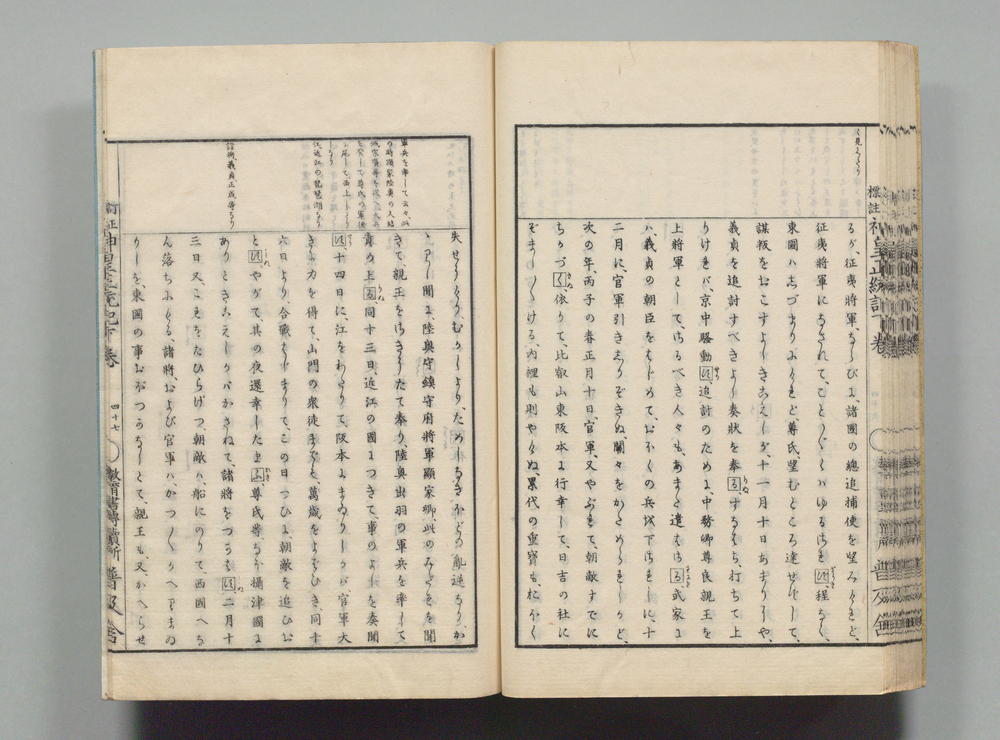 標註神皇正統記下卷
るが、征夷將軍、ならびに、諸國の總追捕使を望みけれど、
征夷將軍になされて、ことごとくハゆるされ須、程なく、
東國ハしづまりにけれど尊氏、望むところ達せずして、
謀叛をおこすよしきこえしが、十一月十日あまりにや、
義貞を追討すべきよし奏狀を奉る、すなはち、打ちて上
りけれバ、京中騷動須、追討のために、中務卿尊良親王を
上將軍として、さるべき人々もあまた遣はさる、武家に
ハ、義貞の朝臣をはじめて、おほくの兵を下されしに、十
二月に官軍引きしりぞきぬ、關々をかためられしかど、
次の年、丙子の春正月十日、官軍又やぶれて、朝敵すでに
ちかづく、依りて、比叡山東坂本に行幸して、日吉の社に
ぞましましける、内裡も則やけぬ、累代の重寳も、おほく
軍兵を率して云々
義貞正成等なり
失せにけり、むかしより、ためしなきほどの亂逆なり、か
ゝりし間に、陸奥守鎮守府將軍顯家卿、此のみだれを聞
きて、親王をさきにたて奉り、陸奥出羽の軍兵を率して、
責め上る、同十三日、近江の國につきて、事のよしを奏聞
須、十四日に、江をわたりて、阪本にまゐりしかバ、官軍大
きに力を得て、山門の衆徒までも、萬歳をよばひき、同十
六日より、合戰はじまりて、この日つひに、朝敵を追ひお
と須、やがて、其の夜還幸したまふ、尊氏等なほ攝津國に
ありときこえしかバかさねて、諸將をつかは須、二月十
三日又、これをたひらげつ、朝敵ハ、船にのりて、西國へな
ん落ちにける、諸將、および官軍ハ、かつかつかへりまゐ
りしを、東國の事おぼつかなしとて、親王も、又かへらせ
四十七